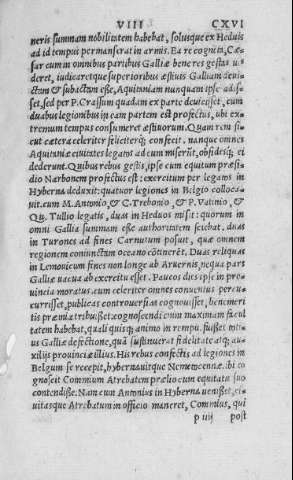 VIII CXVI
neris summam nobilitatem habebat, solusque ex Heduis
ad id tempus permanserat in armis. Ea re cognita, Cæ-
sar cum in omnibus paribus Galliæ bene res gestas ui
deret, iudicaretque superioribus æstiuis Galliam deui-
ctam & subactam esse, Aquitaniam nunquam ipse adis-
set, sed per P. Crassum quadam ex parte deuicisset, cum
duabus legionibus in eam partem est profectus, ubi ex-
tremum tempus consumeret æstiuorum. Quam rem si-
cut cætera celeriter feliciterq; confecit. nanque omnes
Aquitaniæ ciuitates legatos ad eum miserūt, obsidesq; ei
dederunt. Quibus rebus gestis, ipse cum equitum præsi-
dio Narbonem profectus est: exercitum per legatos in
Hyberna deduxit: quatuor legiones in Belgio colloca-
uit. cum M. Antonio, & C. Trebonio, & P. Vatinio, &
Qu. Tullio legatis, duas in Heduos misit: quorum in
omni Gallia summam esse authoritatem sciebat. duas
in Turones ad fines Carnutum posuit, quæ omnem
regionem coniunctam oceano cōtineret. Duas reliquas
in Lemouicum fines non longe ab Aruernis, ne qua pars
Galliæ uacua ab exercitu esset. Paucos dies ipse in pro-
uincia moratus, cum celeriter omnes conuentus percu-
currisset, publicas controuersias cognouisset, benemeri
tis præmia tribuisset: cognoscendi enim maximam facul
tatem habebat, quali quisq; animo in rempu. fuisset toti-
us Galliæ defectione, quā sustinuerat fidelitate atq; au-
xilijs prouinciæ illius. His rebus confectis ad legiones in
Belgum se recepit, hybernauitque Nemetocennæ. ibi co
gnoscit Commium Atrebatem prælio cum equitatu suo
contendisse. Nam cum Antonius in Hyberna uenisset, ci-
uitasque Atrebatum in officio maneret, Commius, qui
p iiij post